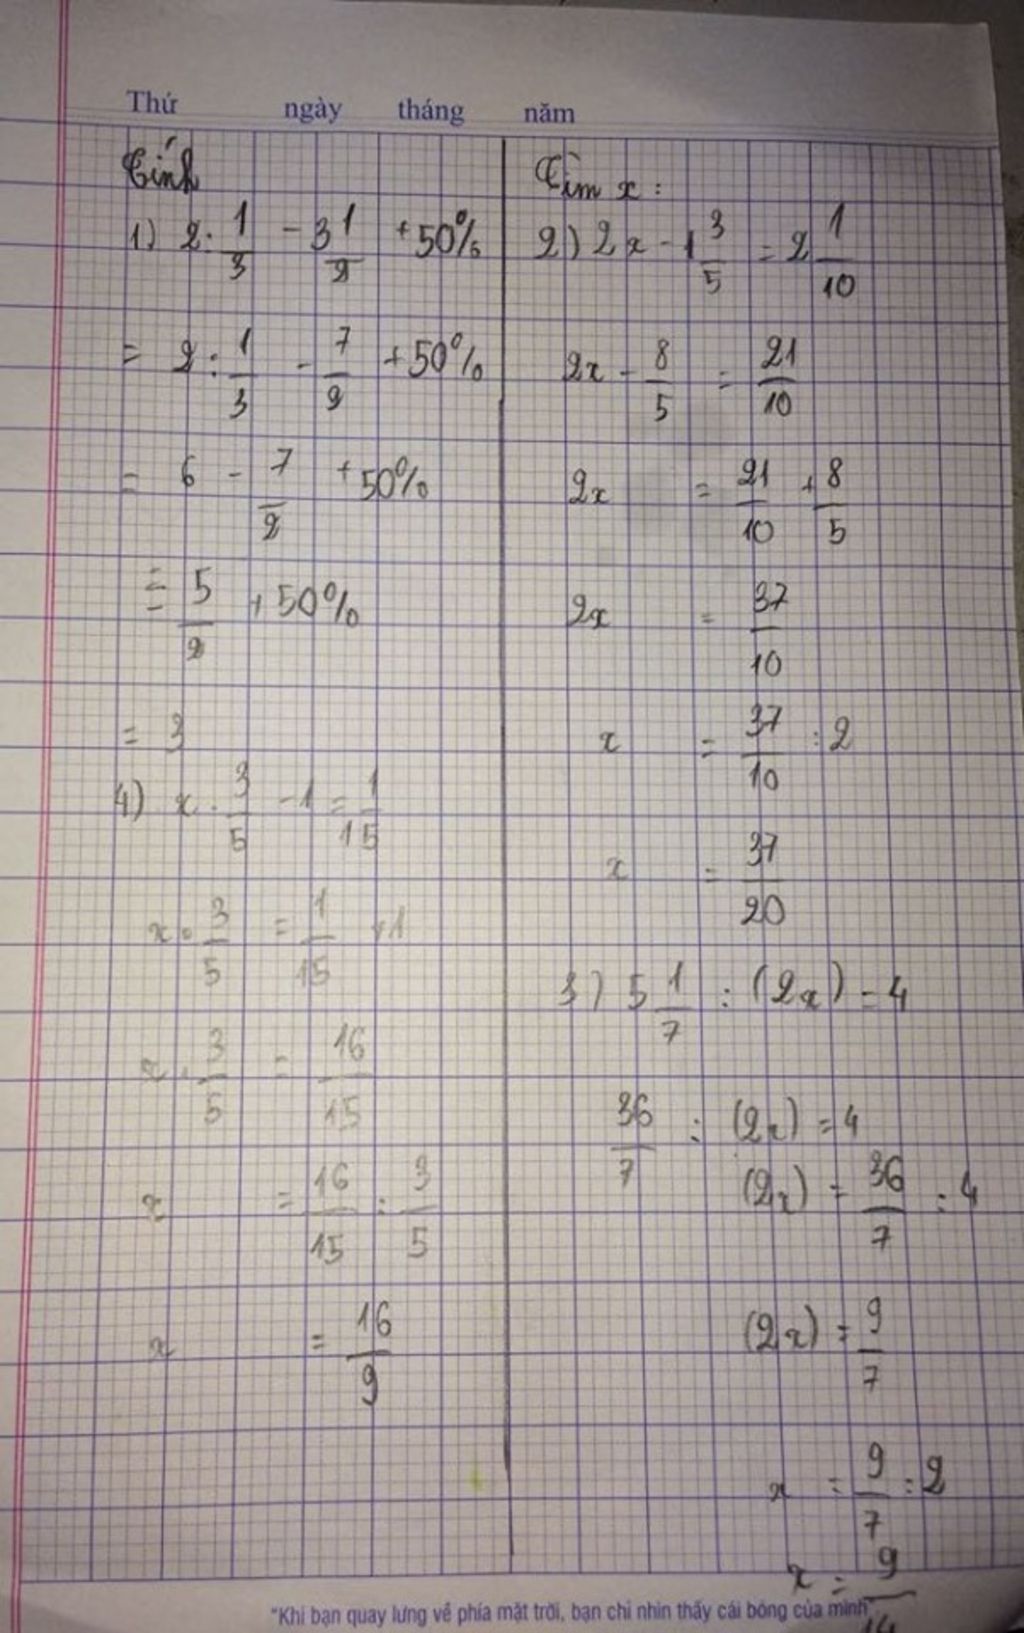 Thứ ngày tháng năm
Tính
1) 2 : 1/3 - 3 1/2 + 50%
= 2 : 1/3 - 7/2 + 50%
= 6 - 7/2 + 50%
= 5/2 + 50%
= 3
4) x . 3/5 - 1 = 1/15
x . 3/5 = 1/15 + 1
x . 3/5 = 16/15
x = 16/15 : 3/5
x = 16/9
Tìm x :
2) 2x - 1 3/5 = 2 1/10
2x - 8/5 = 21/10
2x = 21/10 + 8/5
2x = 37/10
x = 37/10 : 2
x = 37/20
3) 5 1/7 : (2x) = 4
36/7 : (2x) = 4
(2x) = 36/7 : 4
(2x) = 9/7
x = 9/7 : 2
x = 9/14
"Khi bạn quay lưng về phía mặt trời, bạn chỉ nhìn thấy cái bóng của mình"